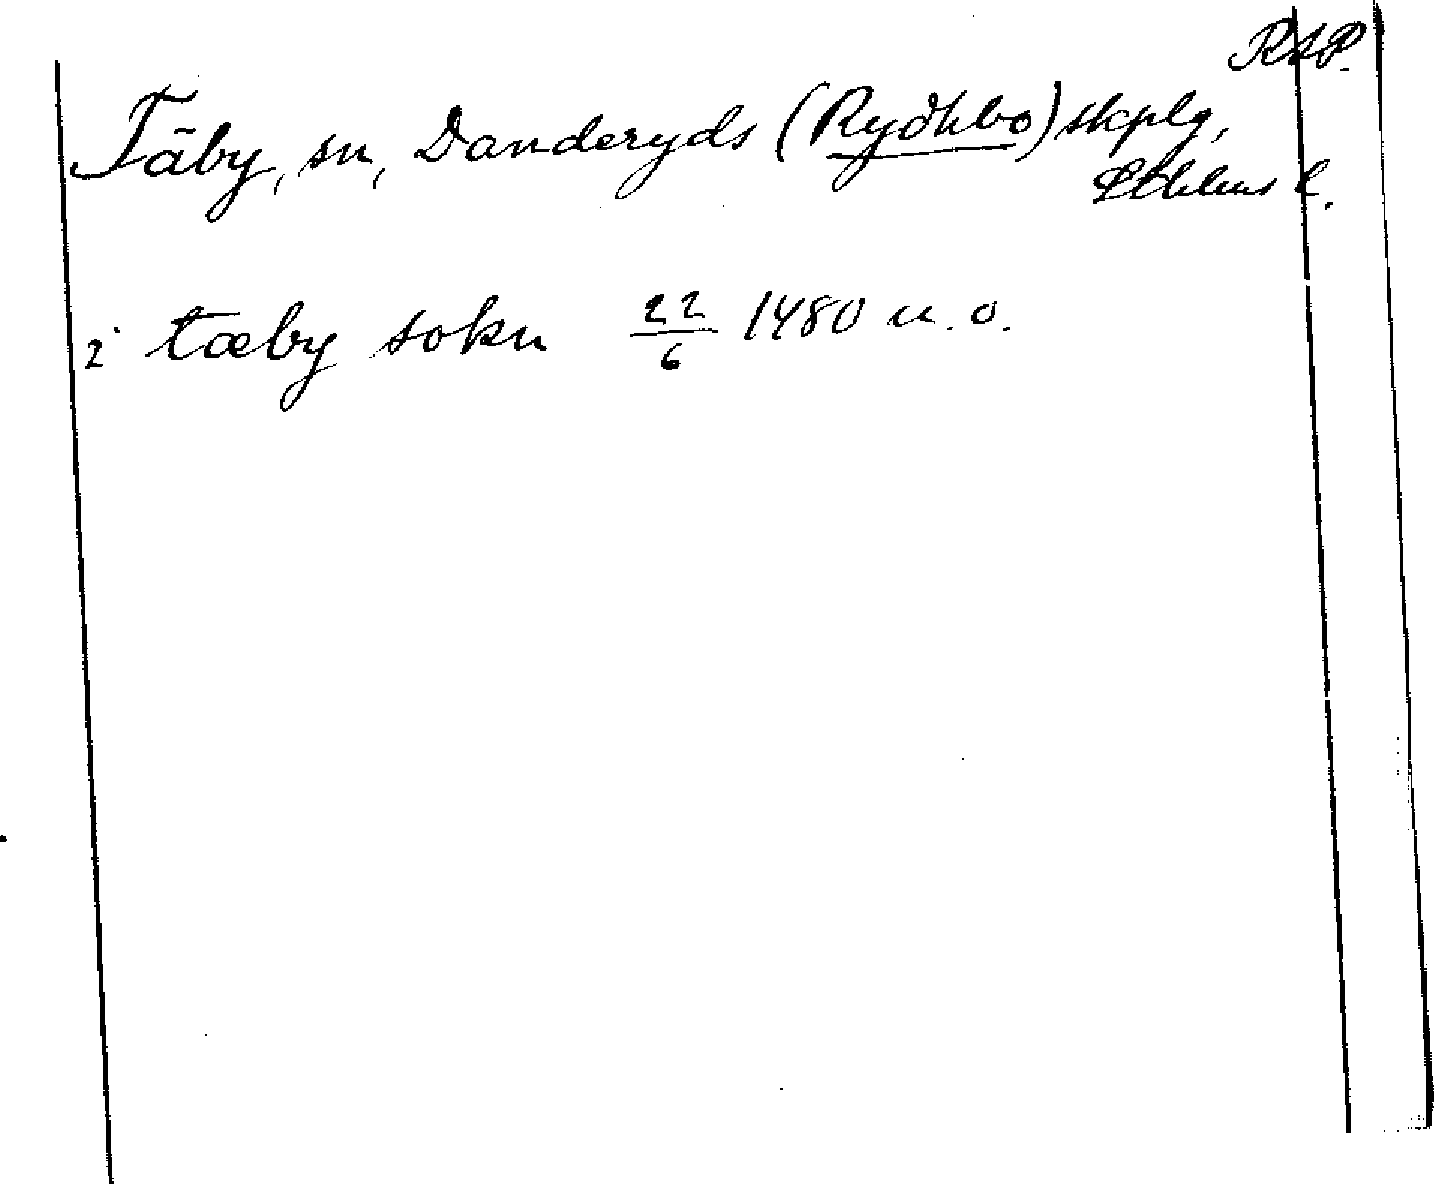 RAP.
Täby, sn, Danderyds (Rydhbo) skplg,
Sthlms l.
i tæby sokn 22/6 1480 u. o.